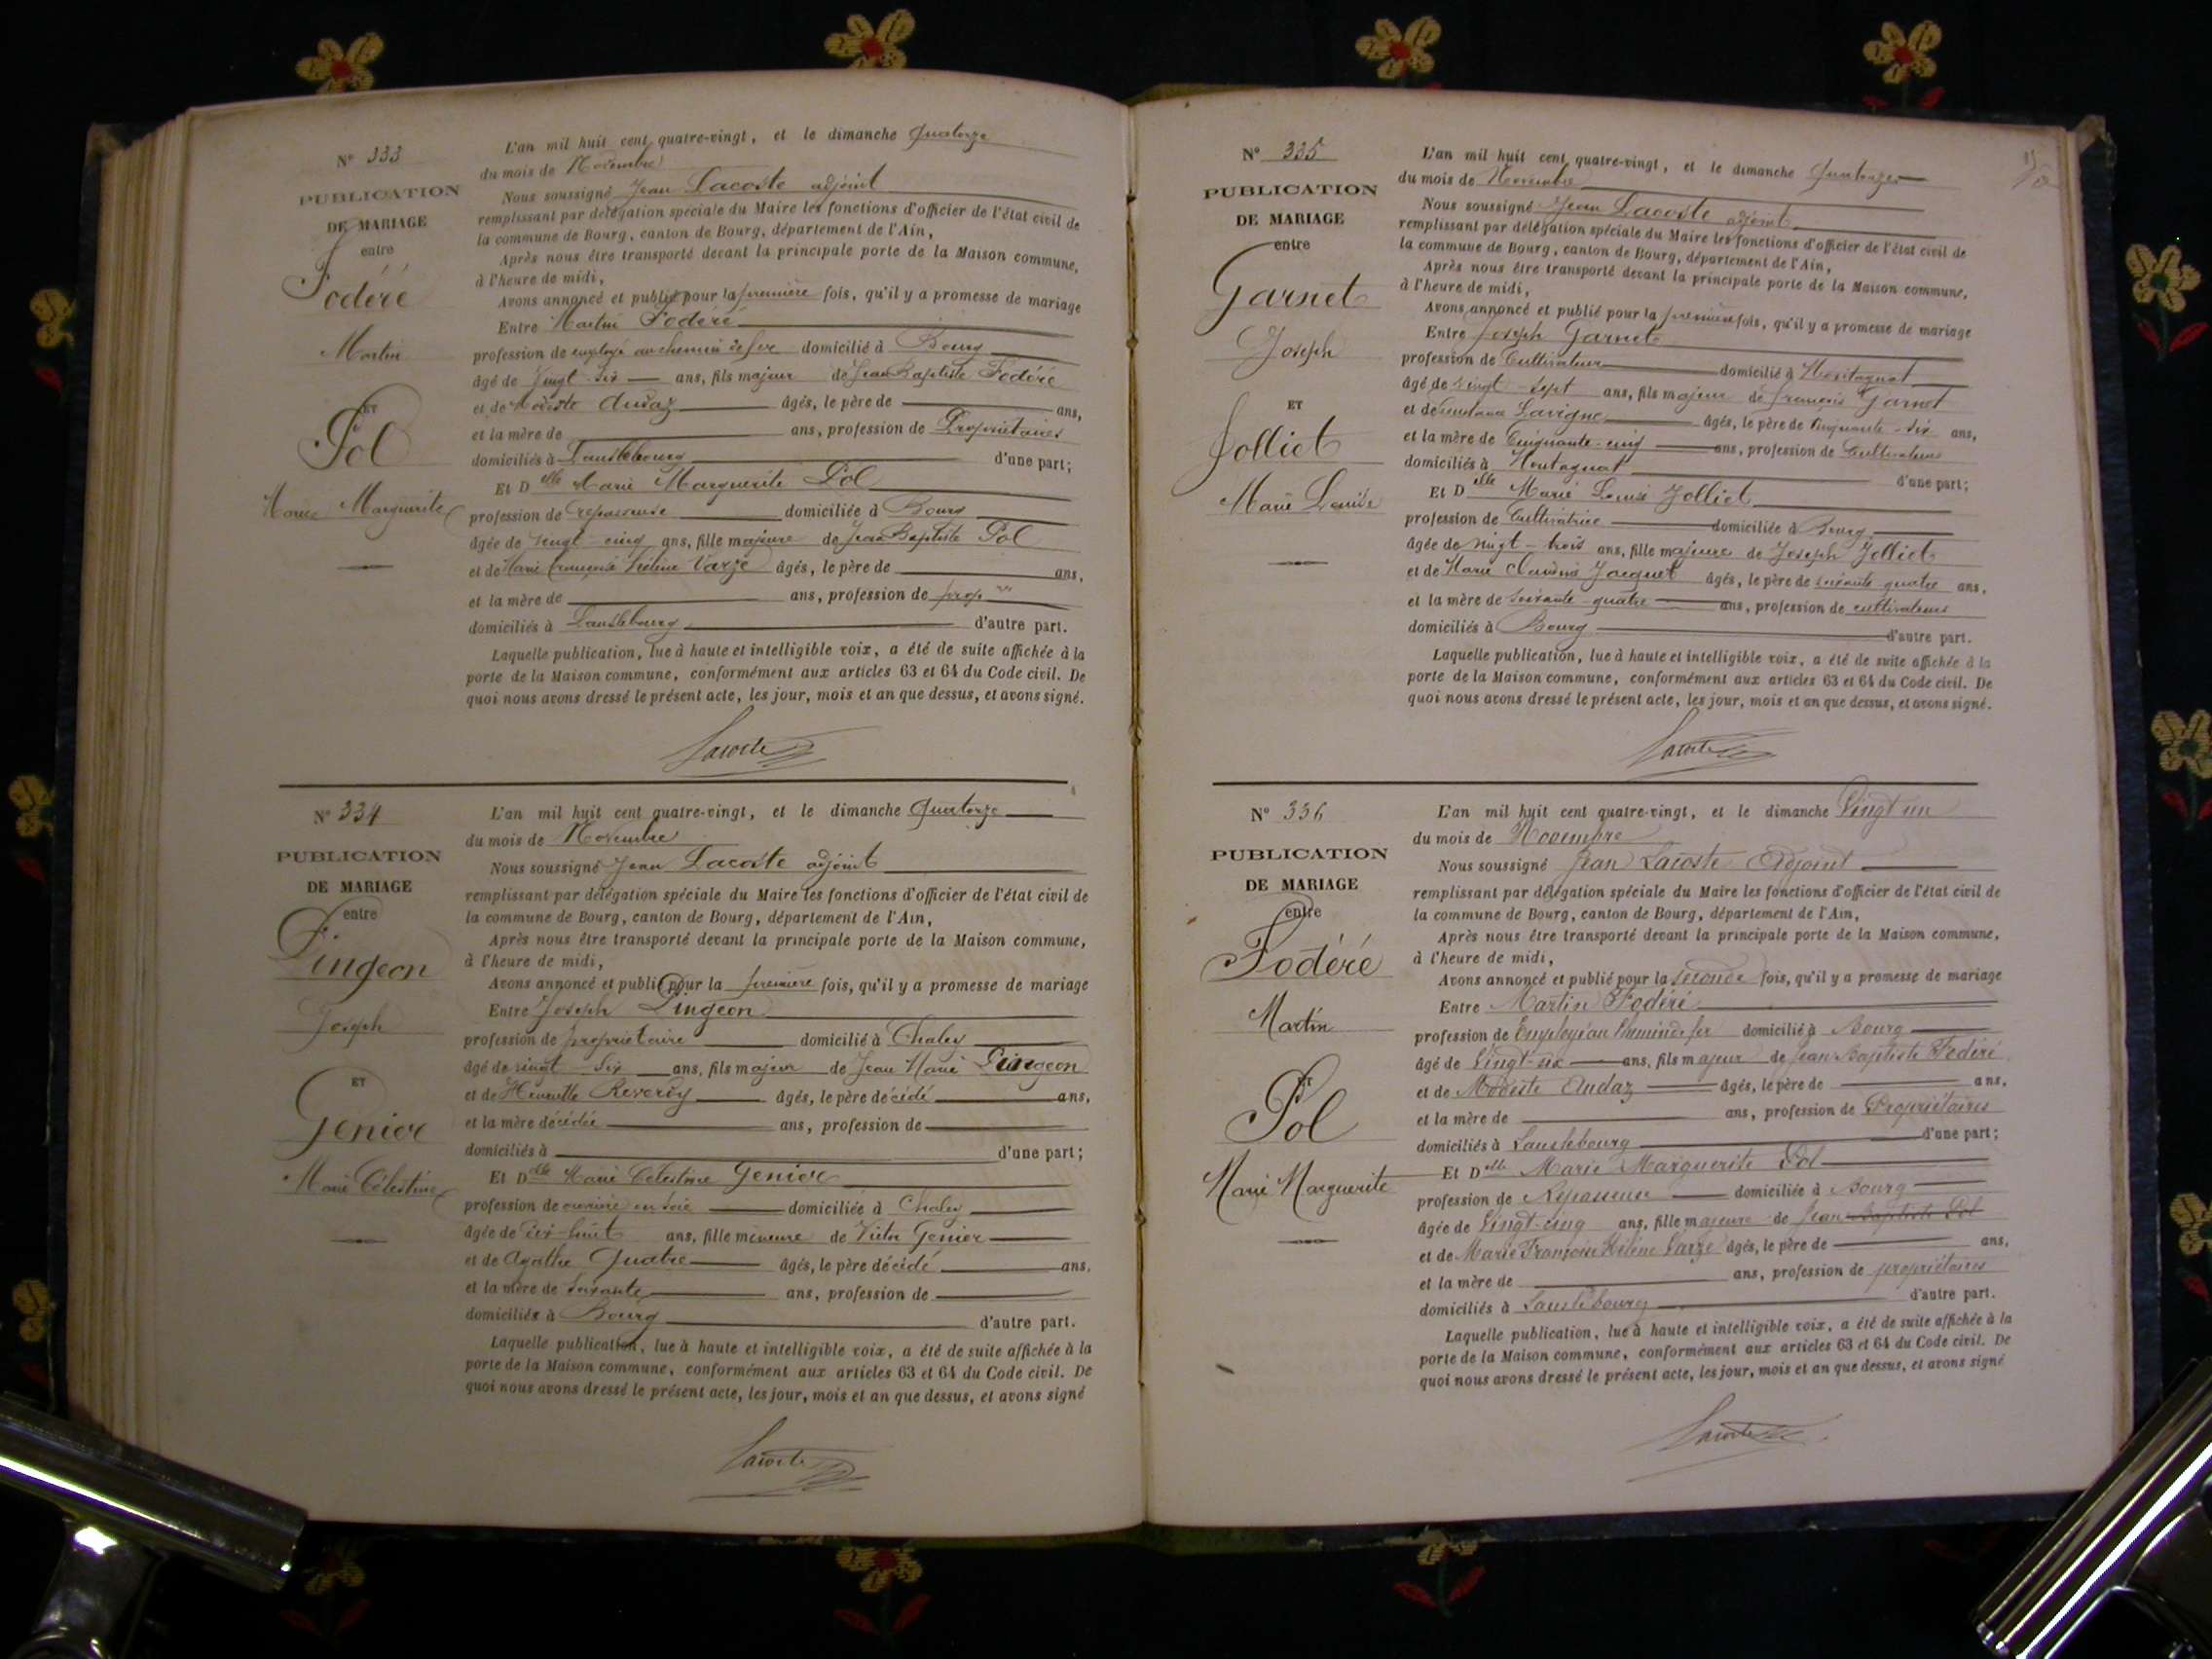 N° 333
PUBLICATION
DE MARIAGE
entre
Fodéré
Martin
ET
Pol
Marie Marguerite
L'an mil huit cent quatre-vingt, et le dimanche quatorze
du mois de Novembre
Nous soussigné Jean Lacoste adjoint
remplissant par délégation spéciale du Maire les fonctions d'officier de l'état civil de
la commune de Bourg, canton de Bourg, département de l'Ain,
Après nous être transporté devant la principale porte de la Maison commune,
à l'heure de midi,
Avons annoncé et publié pour la première fois, qu'il y a promesse de mariage
Entre Martin Fodéré
profession de employé au chemin de fer domicilié à Bourg
âgé de vingt-six ans, fils majeur de Jean Baptiste Fodéré
et de Modeste Audaz âgés, le père de ans,
et la mère de ans, profession de Propriétaires
domiciliés à Lanslebourg d'une part;
Et Delle Marie Marguerite Pol
profession de repasseuse domiciliée à Bourg
âgée de vingt-cinq ans, fille majeure de Jean Baptiste Pol
et de Marie Françoise Hélène Varze âgés, le père de ans,
et la mère de ans, profession de prop
domiciliés à Lanslebourg d'autre part.
Laquelle publication, lue à haute et intelligible voix, a été de suite affichée à la
porte de la Maison commune, conformément aux articles 63 et 64 du Code civil. De
quoi nous avons dressé le présent acte, les jour, mois et an que dessus, et avons signé.
Lacoste
N° 334
PUBLICATION
DE MARIAGE
entre
Pingeon
Joseph
ET
Genier
Marie Célestine
L'an mil huit cent quatre-vingt, et le dimanche quatorze
du mois de Novembre
Nous soussigné Jean Lacoste adjoint
remplissant par délégation spéciale du Maire les fonctions d'officier de l'état civil de
la commune de Bourg, canton de Bourg, département de l'Ain,
Après nous être transporté devant la principale porte de la Maison commune,
à l'heure de midi,
Avons annoncé et publié pour la première fois, qu'il y a promesse de mariage
Entre Joseph Pingeon
profession de propriétaire domicilié à Chaley
âgé de vingt-six ans, fils majeur de Jean Marie Pingeon
et de Henriette Reverdy âgés, le père décédé ans,
et la mère décédée ans, profession de
domiciliés à d'une part;
Et Delle Marie Célestine Genier
profession de ouvrière en soie domiciliée à Chaley
âgée de dix-huit ans, fille mineure de Victor Genier
et de Agathe Quatre âgés, le père décédé ans,
et la mère de soixante ans, profession de
domiciliés à Bourg d'autre part.
Laquelle publication, lue à haute et intelligible voix, a été de suite affichée à la
porte de la Maison commune, conformément aux articles 63 et 64 du Code civil. De
quoi nous avons dressé le présent acte, les jour, mois et an que dessus, et avons signé
Lacoste
N° 335
PUBLICATION
DE MARIAGE
entre
Garnet
Joseph
ET
Jolliet
Marie Louise
L'an mil huit cent quatre-vingt, et le dimanche quatorze
du mois de Novembre
Nous soussigné Jean Lacoste adjoint
remplissant par délégation spéciale du Maire les fonctions d'officier de l'état civil de
la commune de Bourg, canton de Bourg, département de l'Ain,
Après nous être transporté devant la principale porte de la Maison commune,
à l'heure de midi,
Avons annoncé et publié pour la première fois, qu'il y a promesse de mariage
Entre Joseph Garnet
profession de Cultivateur domicilié à Montagnat
âgé de vingt-sept ans, fils majeur de François Garnet
et de Lavigne âgés, le père de cinquante-six ans,
et la mère de Cinquante-cinq ans, profession de Cultivateurs
domiciliés à Montagnat d'une part;
Et Delle Marie Louise Jolliet
profession de Cultivatrice domiciliée à Bourg
âgée de vingt-trois ans, fille majeure de Joseph Jolliet
et de Marie Claudine Jacquet âgés, le père de soixante-quatre ans,
et la mère de soixante-quatre ans, profession de cultivateurs
domiciliés à Bourg d'autre part.
Laquelle publication, lue à haute et intelligible voix, a été de suite affichée à la
porte de la Maison commune, conformément aux articles 63 et 64 du Code civil. De
quoi nous avons dressé le présent acte, les jour, mois et an que dessus, et avons signé.
Lacoste
N° 336
PUBLICATION
DE MARIAGE
entre
Fodéré
Martin
ET
Pol
Marie Marguerite
L'an mil huit cent quatre-vingt, et le dimanche Vingt un
du mois de Novembre
Nous soussigné Jean Lacoste Adjoint
remplissant par délégation spéciale du Maire les fonctions d'officier de l'état civil de
la commune de Bourg, canton de Bourg, département de l'Ain,
Après nous être transporté devant la principale porte de la Maison commune,
à l'heure de midi,
Avons annoncé et publié pour la seconde fois, qu'il y a promesse de mariage
Entre Martin Fodéré
profession de Employé au Chemin de fer domicilié à Bourg
âgé de Vingt-six ans, fils majeur de Jean Baptiste Fodéré
et de Modeste Audaz âgés, le père de ans,
et la mère de ans, profession de Propriétaires
domiciliés à Lanslebourg d'une part;
Et Delle Marie Marguerite Pol
profession de Repasseuse domiciliée à Bourg
âgée de Vingt-cinq ans, fille majeure de Jean Baptiste Pol
et de Marie Françoise Hélène Varze âgés, le père de ans,
et la mère de ans, profession de propriétaires
domiciliés à Lanslebourg d'autre part.
Laquelle publication, lue à haute et intelligible voix, a été de suite affichée à la
porte de la Maison commune, conformément aux articles 63 et 64 du Code civil. De
quoi nous avons dressé le présent acte, les jour, mois et an que dessus, et avons signé
Lacoste